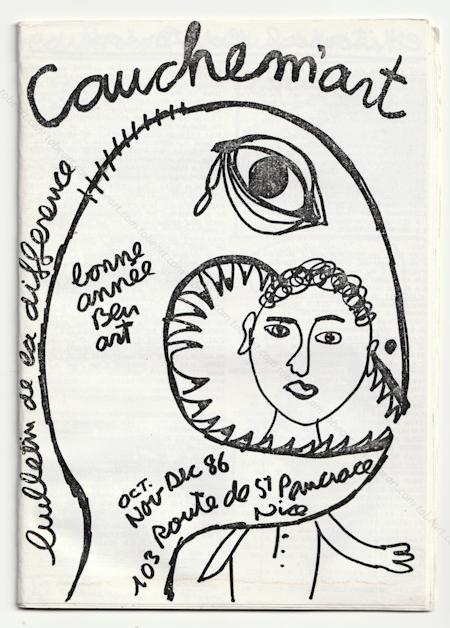 Cauchem'art
bulletin de la différence
bonne
année
Ben
art
OCT.
NOV DEC 86
103 Route de St Pancrace
Nice